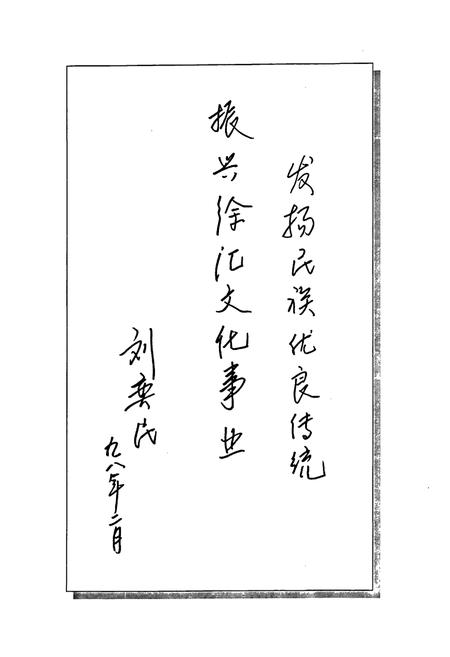 发扬民族优良传统
振兴徐汇文化事业
刘奕民
九八年二月